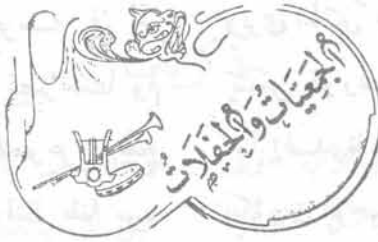 الجَمعيَاتُ وَالحَفَلاتُ